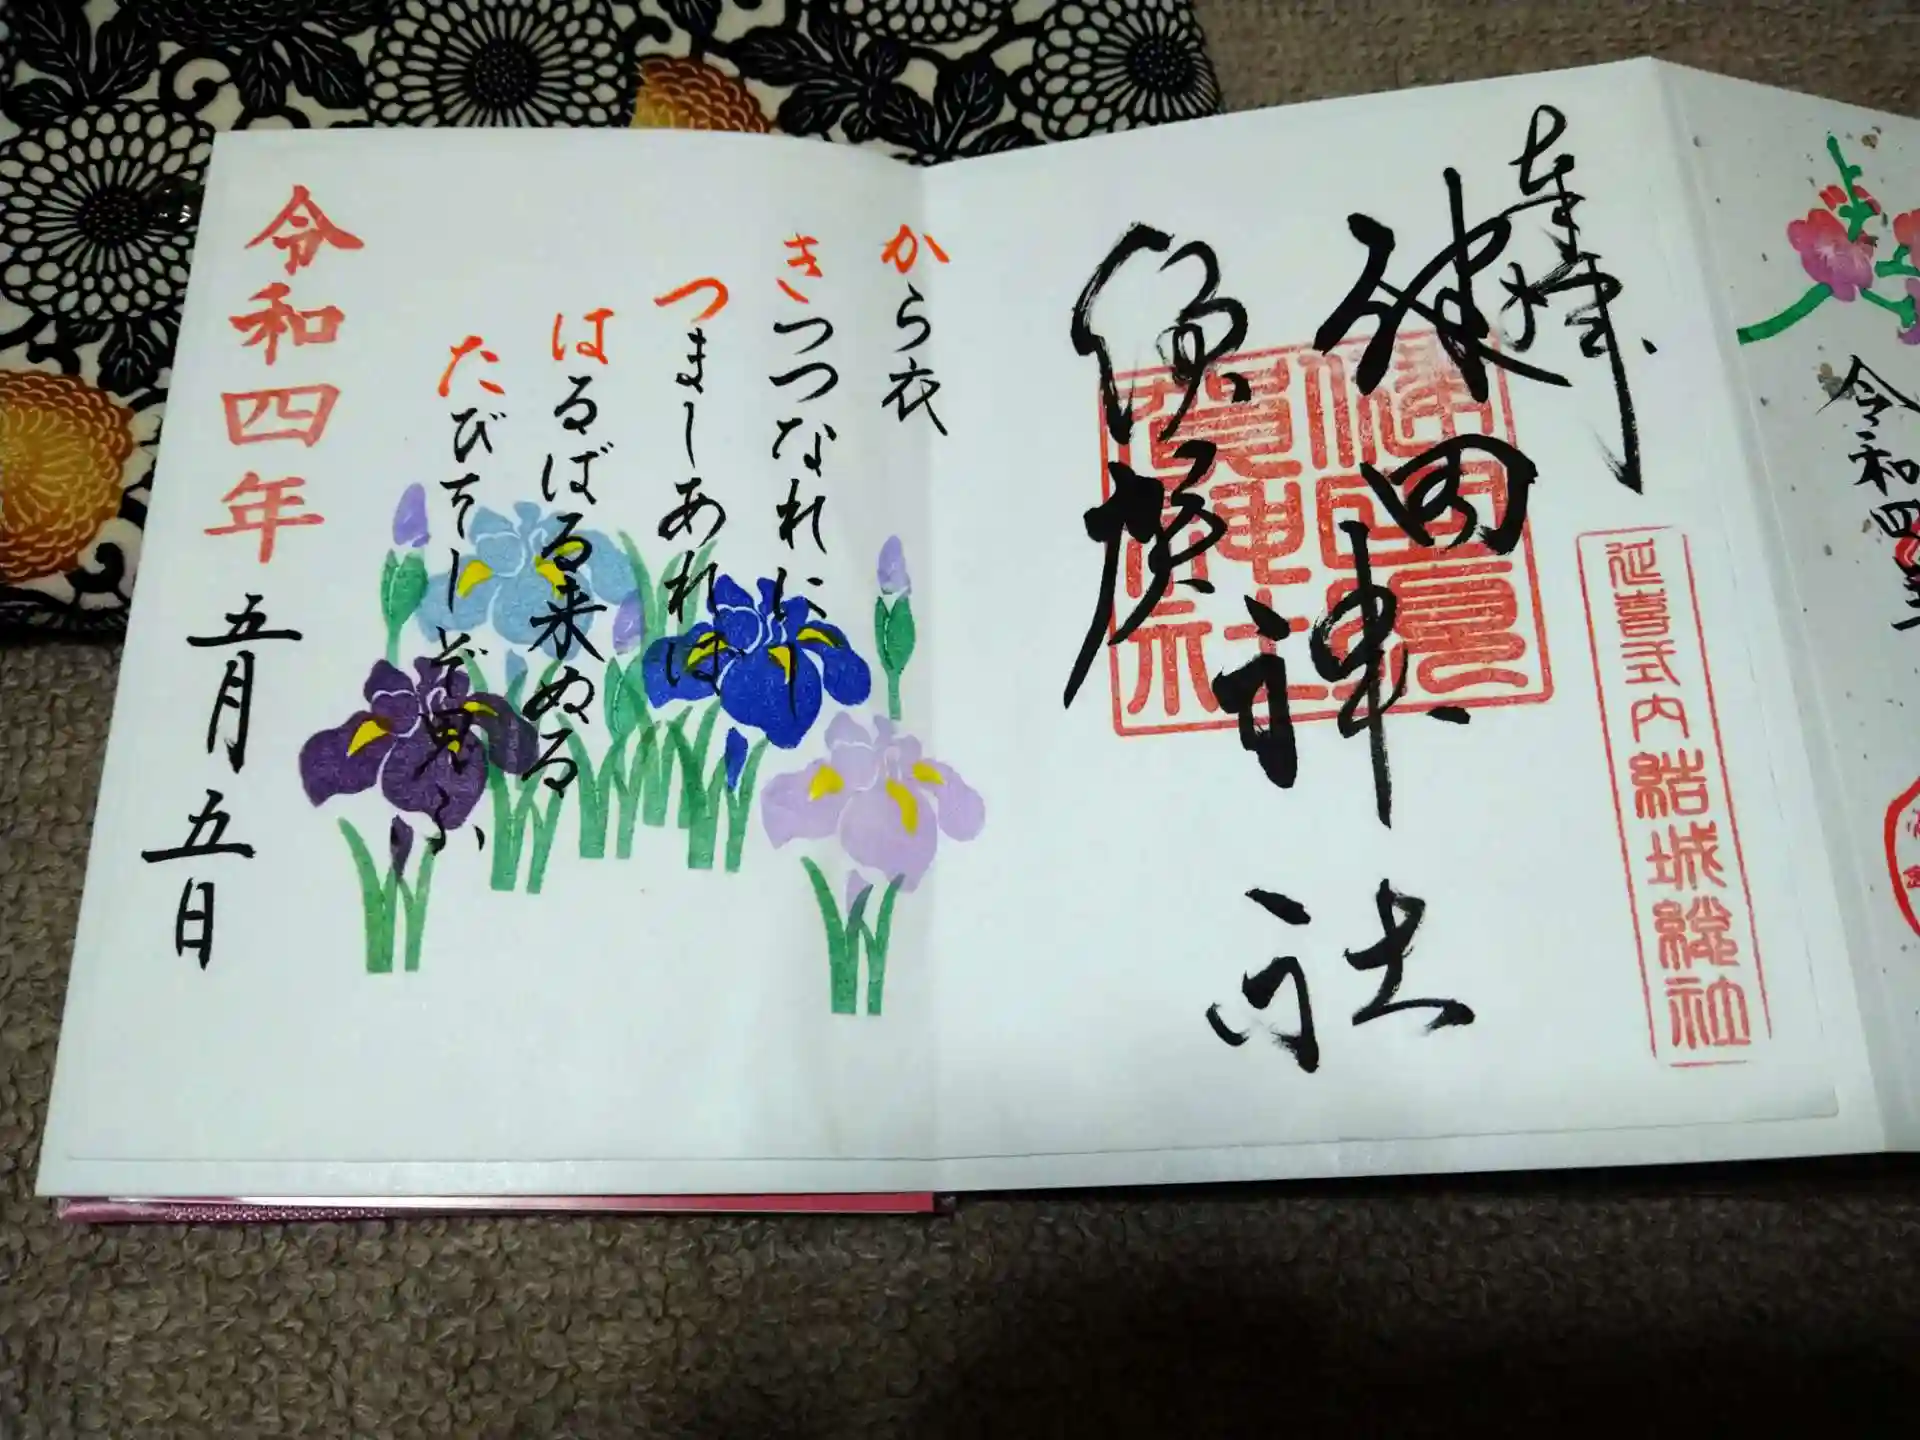 令和四
奉拝
健田神社
須賀神社
健田須
賀神社
延喜式内結城総社
から衣
きつつなれにし
つましあれば
はるばる来ぬる
たびをしぞ思ふ
令和四年
五月五日